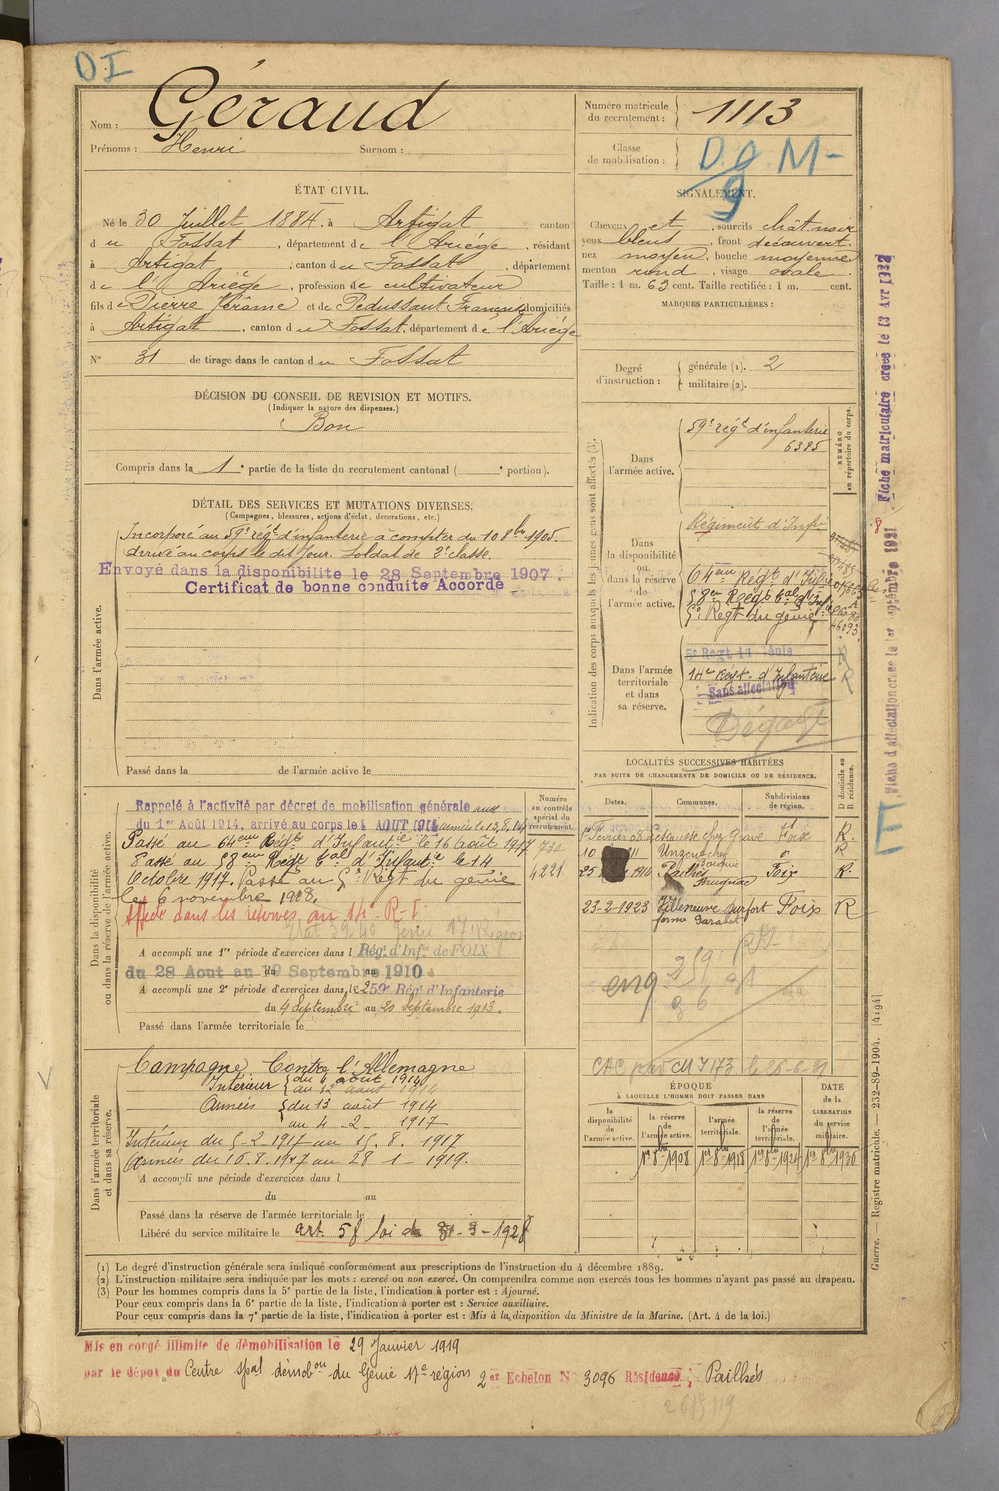 DI
Nom : Géraud
Prénoms : Henri Surnom :
Numéro matricule du recrutement : 1113
Classe de mobilisation : D.O.M-
9
ÉTAT CIVIL.
Né le 30 Juillet 1884, à Artigat canton
du Fossat, département de l'Ariège, résidant
à Artigat, canton du Fossat, département
de l'Ariège, profession de cultivateur
fils de Pierre Jérôme et de Pedussaut Françoise domiciliés
à Artigat, canton du Fossat, département de l'Ariège
N° 31 de tirage dans le canton du Fossat
SIGNALEMENT.
Cheveux et, sourcils chât noir
yeux bleus, front découvert
nez moyen, bouche moyenne
menton rond, visage ovale
Taille : 1 m. 63 cent. Taille rectifiée : 1 m. cent.
MARQUES PARTICULIÈRES :
Degré d'instruction : générale (1). 2
militaire (2).
DÉCISION DU CONSEIL DE REVISION ET MOTIFS.
(Indiquer la nature des dispenses.)
Bon
Compris dans la 1e partie de la liste du recrutement cantonal ( e portion).
DÉTAIL DES SERVICES ET MUTATIONS DIVERSES.
(Campagnes, blessures, actions d'éclat, décorations, etc.)
Dans l'armée active.
Incorporé au 59e régt d'infanterie à compter du 10 8bre 1905.
Arrivé au corps le dit jour. Soldat de 2e classe.
Envoyé dans la disponibilité le 28 Septembre 1907.
Certificat de bonne conduite Accordé
Passé dans la de l'armée active le
Indication des corps auxquels les jeunes gens sont affectés (3).
NUMÉRO au répertoire du corps.
Dans l'armée active.
59e régt d'infanterie
6395
Dans la disponibilité ou dans la réserve de l'armée active.
Régiment d'Infie
64eme Regt d'Infie
58em Regt d'Infie
5e Regt du génie
46093
Dans l'armée territoriale et dans sa réserve.
5e Regt du Génie
R
14e Régt. d'Infanterie R
Sans affectation
Dégagé
LOCALITÉS SUCCESSIVES HABITÉES
PAR SUITE DE CHANGEMENTS DE DOMICILE OU DE RÉSIDENCE.
Dates. Communes. Subdivisions de région. D domicile ou R résidence.
Foix R.
10 Unzent R
25 1914 Pailhès Foix R.
23-2-1923 Villeneuve Durfort Foix R
Dans la disponibilité ou dans la réserve de l'armée active.
Numéro au contrôle spécial du recrutement.
Rappelé à l'activité par décret de mobilisation générale
du 1er Août 1914, arrivé au corps le 4 AOUT 1914
Passé au 64eme Regt d'Infantie le 16 août 1917 732
Passé au 58eme Regt d'Infantie le 14
Octobre 1917. Passé au 5e Regt du génie 4221
le 6 novembre 1918.
Affecté dans les réserves au 14e R.I.
A accompli une 1re période d'exercices dans le Régt d'Infie de FOIX
du 28 Aout au 19 Septembre 1910
A accompli une 2e période d'exercices dans le 259e Régt d'Infanterie
du 4 Septembre au 20 Septembre 1913.
Passé dans l'armée territoriale le
Dans l'armée territoriale et dans sa réserve.
Campagne Contre l'Allemagne
Intérieur du 4 août 1914
au 12 août 1914
Armées du 13 août 1914
au 4-2-1917
Intérieur du 5-2-1917 au 15.8.1917
Armées du 16.8.1917 au 28-1-1919.
A accompli une période d'exercices dans l
du au
Passé dans la réserve de l'armée territoriale le
Libéré du service militaire le art. 58 loi de 31-3-1928
eng 259
ÉPOQUE
À LAQUELLE L'HOMME DOIT PASSER DANS
la disponibilité de l'armée active.
la réserve de l'armée active.
l'armée territoriale.
la réserve de l'armée territoriale.
DATE de la LIBÉRATION du service militaire.
1er 8bre 1908 1er 8bre 1918 1er 8bre 1924 1er 8bre 1930
(1) Le degré d'instruction générale sera indiqué conformément aux prescriptions de l'instruction du 4 décembre 1889.
(2) L'instruction militaire sera indiquée par les mots : exercé ou non exercé. On comprendra comme non exercés tous les hommes n'ayant pas passé au drapeau.
(3) Pour les hommes compris dans la 5e partie de la liste, l'indication à porter est : Ajourné.
Pour ceux compris dans la 6e partie de la liste, l'indication à porter est : Service auxiliaire.
Pour ceux compris dans la 7e partie de la liste, l'indication à porter est : Mis à la disposition du Ministre de la Marine. (Art. 4 de la loi.)
Mis en congé illimité de démobilisation le 29 Janvier 1919
par le dépôt du Centre spal démobon du Génie 17e région 2er Echelon N° 3096 Résidence, Pailhès
Fiche matriculaire créée le 13 Avr 1922
Fiche d'affectation créée le 1er septembre 1921
E
Guerre. — Registre matricule. — 232-89-1904. [4194]